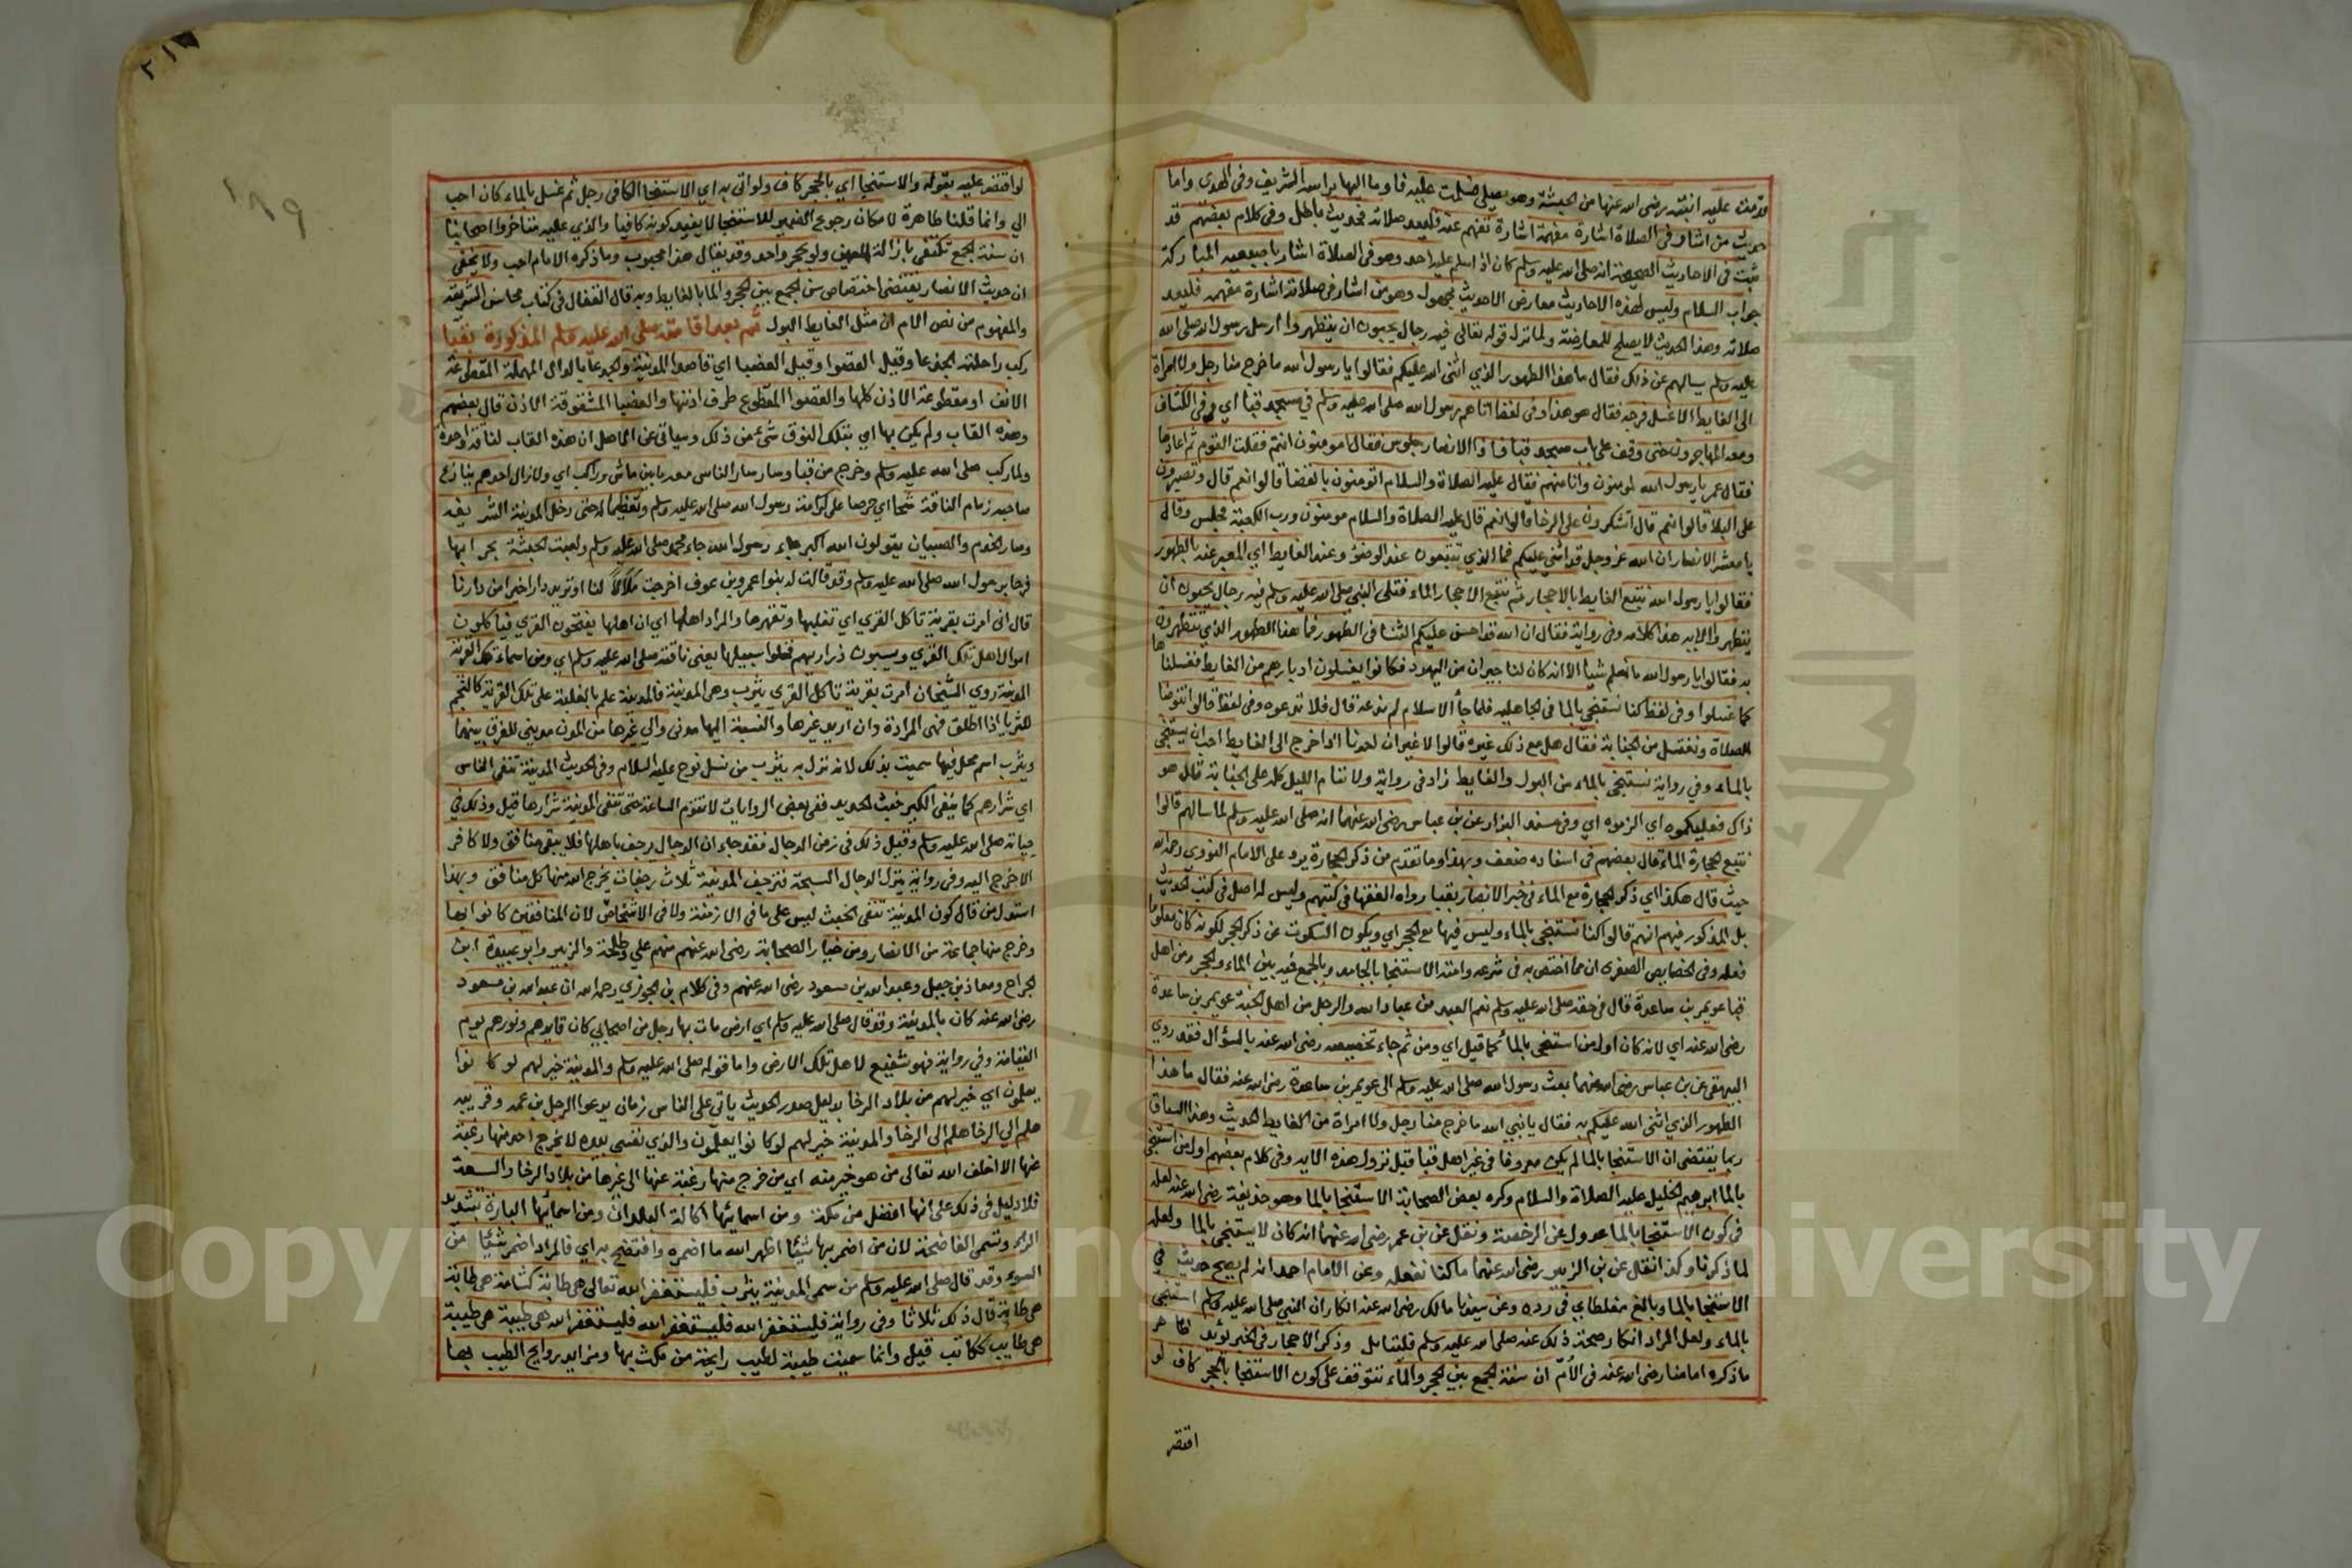 قدمت عليه ابنته رضى الله عنها من الحبشة وهو يصلى فسلمت عليه فاوما اليها براسه الشريف وفى الهدى واما
حديث من اشار فى الصلاة اشارة مفهمة اشارة تفهم عنه فليعد صلاته فحديث باطل وفى كلام بعضهم قد
ثبت فى الاحاديث الصحيحة انه صلى الله عليه وسلم كان اذا سلم عليه احد وهو فى الصلاة اشار باصبعيه المباركة
جواب السلام وليس لهذه الاحاديث معارض الا حديث مجهول وهو من اشار فى صلاته اشارة مفهمه فليعد
صلاته وهذا الحديث لا يصلح للمعارضة ولما نزل قوله تعالى فيه رجال يحبون ان يتطهروا ارسل رسول الله صلى الله
عليه وسلم يسالهم عن ذلك فقال ما هذا الطهور الذي اثنى الله عليكم فقالوا يا رسول الله ما خرج منا رجل ولا امراة
الى الغايط الا غسل فرجه فقال هو هذا وفى لفظ اتاهم رسول الله صلى الله عليه وسلم في مسجد قبا اي وفى الكشاف
ومعه المهاجرون حتى وقف على باب مسجد قبا فاذا الانصار جلوس فقال امومنون انتم فسكت القوم ثم اعادها
فقال عمر يا رسول الله لمومنون وانا منهم فقال عليه الصلاة والسلام اتومنون بالقضا قالوا نعم قال وتصبرون
على البلا قالوا نعم قال اتشكرون على الرخا قالوا نعم قال عليه الصلاة والسلام مومنون ورب الكعبة فجلس وقال
يا معشر الانصار ان الله عز وجل قد اثنى عليكم فما الذي تتبعون عند الوضوء وعند الغايط اي المعبر عنه بالطهور
فقالوا يا رسول الله نتبع الغايط بالاحجار ثم نتبع الاحجار الماء فتلى النبي صلى الله عليه وسلم فيه رجال يحبون ان
يتطهروا الايه هذا كلامه وفى رواية فقال ان الله قد احسن عليكم الثنا فى الطهور فما هذا الطهور الذي تتطهرون
به فقالوا يا رسول الله ما نعلم شيا الا انه كان لنا جيران من اليهود فكانوا يغسلون ادبارهم من الغايط فغسلنا
كما غسلوا وفى لفظ كنا نستنجي بالما فى الجاهليه فلما جأ الاسلام لم ندعه قال فلا تدعوه وفى لفظ قالوا نتوضا
للصلاة ونغتسل من الجنابة فقال هل مع ذلك غيره قالوا لا غير ان احدنا اذا خرج الى الغايط احب ان يستنجي
بالماء وفي رواية نستنجي بالماء من البول والغايط زاد فى رواية ولا ننام الليل كله على الجنابة قال هو
ذاك فعليكموه اي الزموه اي وفى مسند البزار عن بن عباس رضى الله عنهما انه صلى الله عليه وسلم لما سالهم قالوا
نتبع الحجارة الماء قال بعضهم فى اسناده ضعف وبهذا وما تقدم من ذكر الحجارة يرد على الامام النووي رحمه الله
حيث قال هكذا اي ذكر الحجارة مع الماء فى خبر الانصار بقبا رواه الفقها فى كتبهم وليس له اصل فى كتب الحديث
بل المذكور فيهم انهم قالوا كنا نستنجي بالماء وليس فيها مع الحجر اي ويكون السكوت عن ذكر الحجر لكونه كان معلوما
فعله وفى الخصايص الصغرى ان مما اختص به فى شرعه وامته الاستنجا بالجامد وبالجمع فيه بين الماء والحجر ومن اهل
قبا عويمر بن ساعدة قال فى حقه صلى الله عليه وسلم نعم العبد من عباد الله والرجل من اهل الجنة عويمر بن ساعدة
رضى الله عنه اي لانه كان اول من استنجى بالماء كما قيل اي ومن ثم جاء تخصيصه رضى الله عنه بالسؤال فقد روي
البيهقى عن بن عباس رضى الله عنهما بعث رسول الله صلى الله عليه وسلم الى عويمر بن ساعدة رضى الله عنه فقال ما هذا
الطهور الذي اثنى الله عليكم به فقال يا نبي الله ما خرج منا رجل ولا امراة من الغايط الحديث وهذا السياق
ربما يقتضى ان الاستنجا بالما لم يكن معروفا فى غير اهل قبا قبل نزول هذه الايه وفى كلام بعضهم اول من استنجى
بالما ابراهيم الخليل عليه الصلاة والسلام وكره بعض الصحابة الاستنجا بالما وهو حذيفة رضى الله عنه لعله
فى كون الاستنجا بالما عدول عن الرخصة ونقل عن بن عمر رضى الله عنهما انه كان لا يستنجى بالما ولعله
لما ذكرنا وكذا نقل عن بن الزبير رضى الله عنهما ما كنا نفعله وعن الامام احمد انه لم يصح حديث في
الاستنجا بالما وبالغ مغلطاي في رده وعن سيدنا مالك رضى الله عنه انكار ان النبي صلى الله عليه وسلم استنجى
بالماء ولعل المراد انكار صحة ذلك عنه صلى الله عليه وسلم فليتامل وذكر الاحجار فى الخبر يؤيد ظاهر
ما ذكره امامنا رضى الله عنه فى الأم ان سنة الجمع بين الحجر والماء تتوقف على كون الاستنجا بالحجر كاف لو
اقتصر
٢١٧
١٨٩
لو اقتصر عليه بقوله والاستنجا اي بالحجر كاف ولو اتى به اي الاستنجا الكافى رجل ثم غسل بالماء كان احب
الي وانما قلنا ظاهرة لامكان رجوع الضمير للاستنجا لا بقيد كونه كافيا والذي عليه متاخروا اصحابنا
ان سنة الجمع تكتفى بازالة العين ولو بحجر واحد وقد يقال هذا محبوب وما ذكره الامام احب ولا يخفى
ان حديث الانصار يقتضى اختصاص سن الجمع بين الحجر والما بالغايط وبه قال القفال فى كتاب محاسن الشريعة
والمفهوم من نص الام ان مثل الغايط البول ثم بعد اقامته صلى الله عليه وسلم المذكورة بقبا
ركب راحلته الجدعا وقيل القصوا وقيل العضبا اي قاصدا المدينة والجدعا بالدال المهملة المقطوعة
الانف او مقطوعة الاذن كلها والقصوا المقطوع طرف اذنها والعضبا المشقوقة الاذن قال بعضهم
وهذه القاب ولم يكن بها اي بتلك النوق شئ من ذلك وسياتى عن الاصل ان هذه القاب لناقة واحدة
ولما ركب صلى الله عليه وسلم وخرج من قبا وسار سار الناس معه ما بين ماش وراكب اي ولا زال احدهم ينازع
صاحبه زمام الناقة شحا اي حرصا على كرامة رسول الله صلى الله عليه وسلم وتعظيما له حتى دخل المدينة الشريفة
وصار الخدم والصبيان يقولون الله اكبر جاء رسول الله جاء محمد صلى الله عليه وسلم ولعبت الحبشة بحرابها
فرحا برسول الله صلى الله عليه وسلم وقد قالت له بنوا عمرو بن عوف اخرجت ملالا لنا او تريد دارا خيرا من دارنا
قال انى امرت بقرية تاكل القري اي تغلبها وتقهرها والمراد اهلها اي ان اهلها يفتحون القري فياكلون
اموال اهل تلك القري ويسبون ذراريهم فخلوا سبيلها يعنى ناقته صلى الله عليه وسلم اي ومن اسماء تلك القرية
المدينة روي الشيخان امرت بقرية تاكل القري يثرب وهى المدينة فالمدينة علم بالغلبة على تلك القرية كالنجم
للثريا اذا اطلق فهى المرادة وان اريد غيرها والنسبة اليها مدنى والى غيرها من المدن مدينى للفرق بينهما
ويثرب اسم محل فيها سميت بذلك لانه نزل به يثرب من نسل نوح عليه السلام وفى الحديث المدينة تنفى الناس
اي شرارهم كما ينفى الكير خبث الحديد ففى بعض الروايات لا تقوم الساعة حتى تنفى المدينة شرارها قيل وذلك فى
حياته صلى الله عليه وسلم وقيل ذلك فى زمن الدجال فقد جاء ان الدجال يرجف باهلها فلا يبقى منافق ولا كافر
الا خرج اليه وفى رواية ينزل الدجال السبخة فترجف المدينة ثلاث رجفات يخرج الله منها كل منافق وبهذا
استدل من قال كون المدينة تنفى الخبث ليس على ما فى الازمنة ولا فى الاشخاص لان المنافقين كانوا بها
وخرج منها جماعة من الانصار ومن خيار الصحابة رضى الله عنهم منهم علي وطلحة والزبير وابو عبيدة ابن
الجراح ومعاذ بن جبل وعبد الله بن مسعود رضى الله عنهم وفى كلام بن الجوزي رحمه الله ان عبد الله بن مسعود
رضى الله عنه كان بالمدينة وقد قال صلى الله عليه وسلم اي ارض مات بها رجل من اصحابي كان قايدهم ونورهم يوم
القيامة وفي رواية فهو شفيع لاهل تلك الارض واما قوله صلى الله عليه وسلم والمدينة خير لهم لو كانوا
يعلمون اي خير لهم من بلاد الرخا بدليل صدر الحديث ياتى على الناس زمان يدعوا الرجل بن عمه وقريبه
هلم الي الرخا هلم الى الرخا والمدينة خير لهم لو كانوا يعلمون والذي نفسي بيده لا يخرج احد منها رغبة
عنها الا اخلف الله تعالى من هو خير منه اي من خرج منها رغبة عنها الى غيرها من بلاد الرخا والسعة
فلا دليل فى ذلك على انها افضل من مكة ومن اسمائها اكالة البلدان ومن اسمائها البارة بتشديد
الراء وتسمى الفاضحة لان من اضمر بها شيئا اظهر الله ما اضمره وافتضح به اي فالمراد اضمر شيئا من
السوء وقد قال صلى الله عليه وسلم من سمى المدينة يثرب فليستغفر الله تعالى هى طابة كشامة هى طابة
هى طابة قال ذلك ثلاثا وفى رواية فليستغفر الله فليستغفر الله فليستغفر الله هى طيبة هى طيبة
هى طايب ككاتب قيل وانما سميت طيبة لطيب رايحة من مكث بها وتزايد روايح الطيب بها